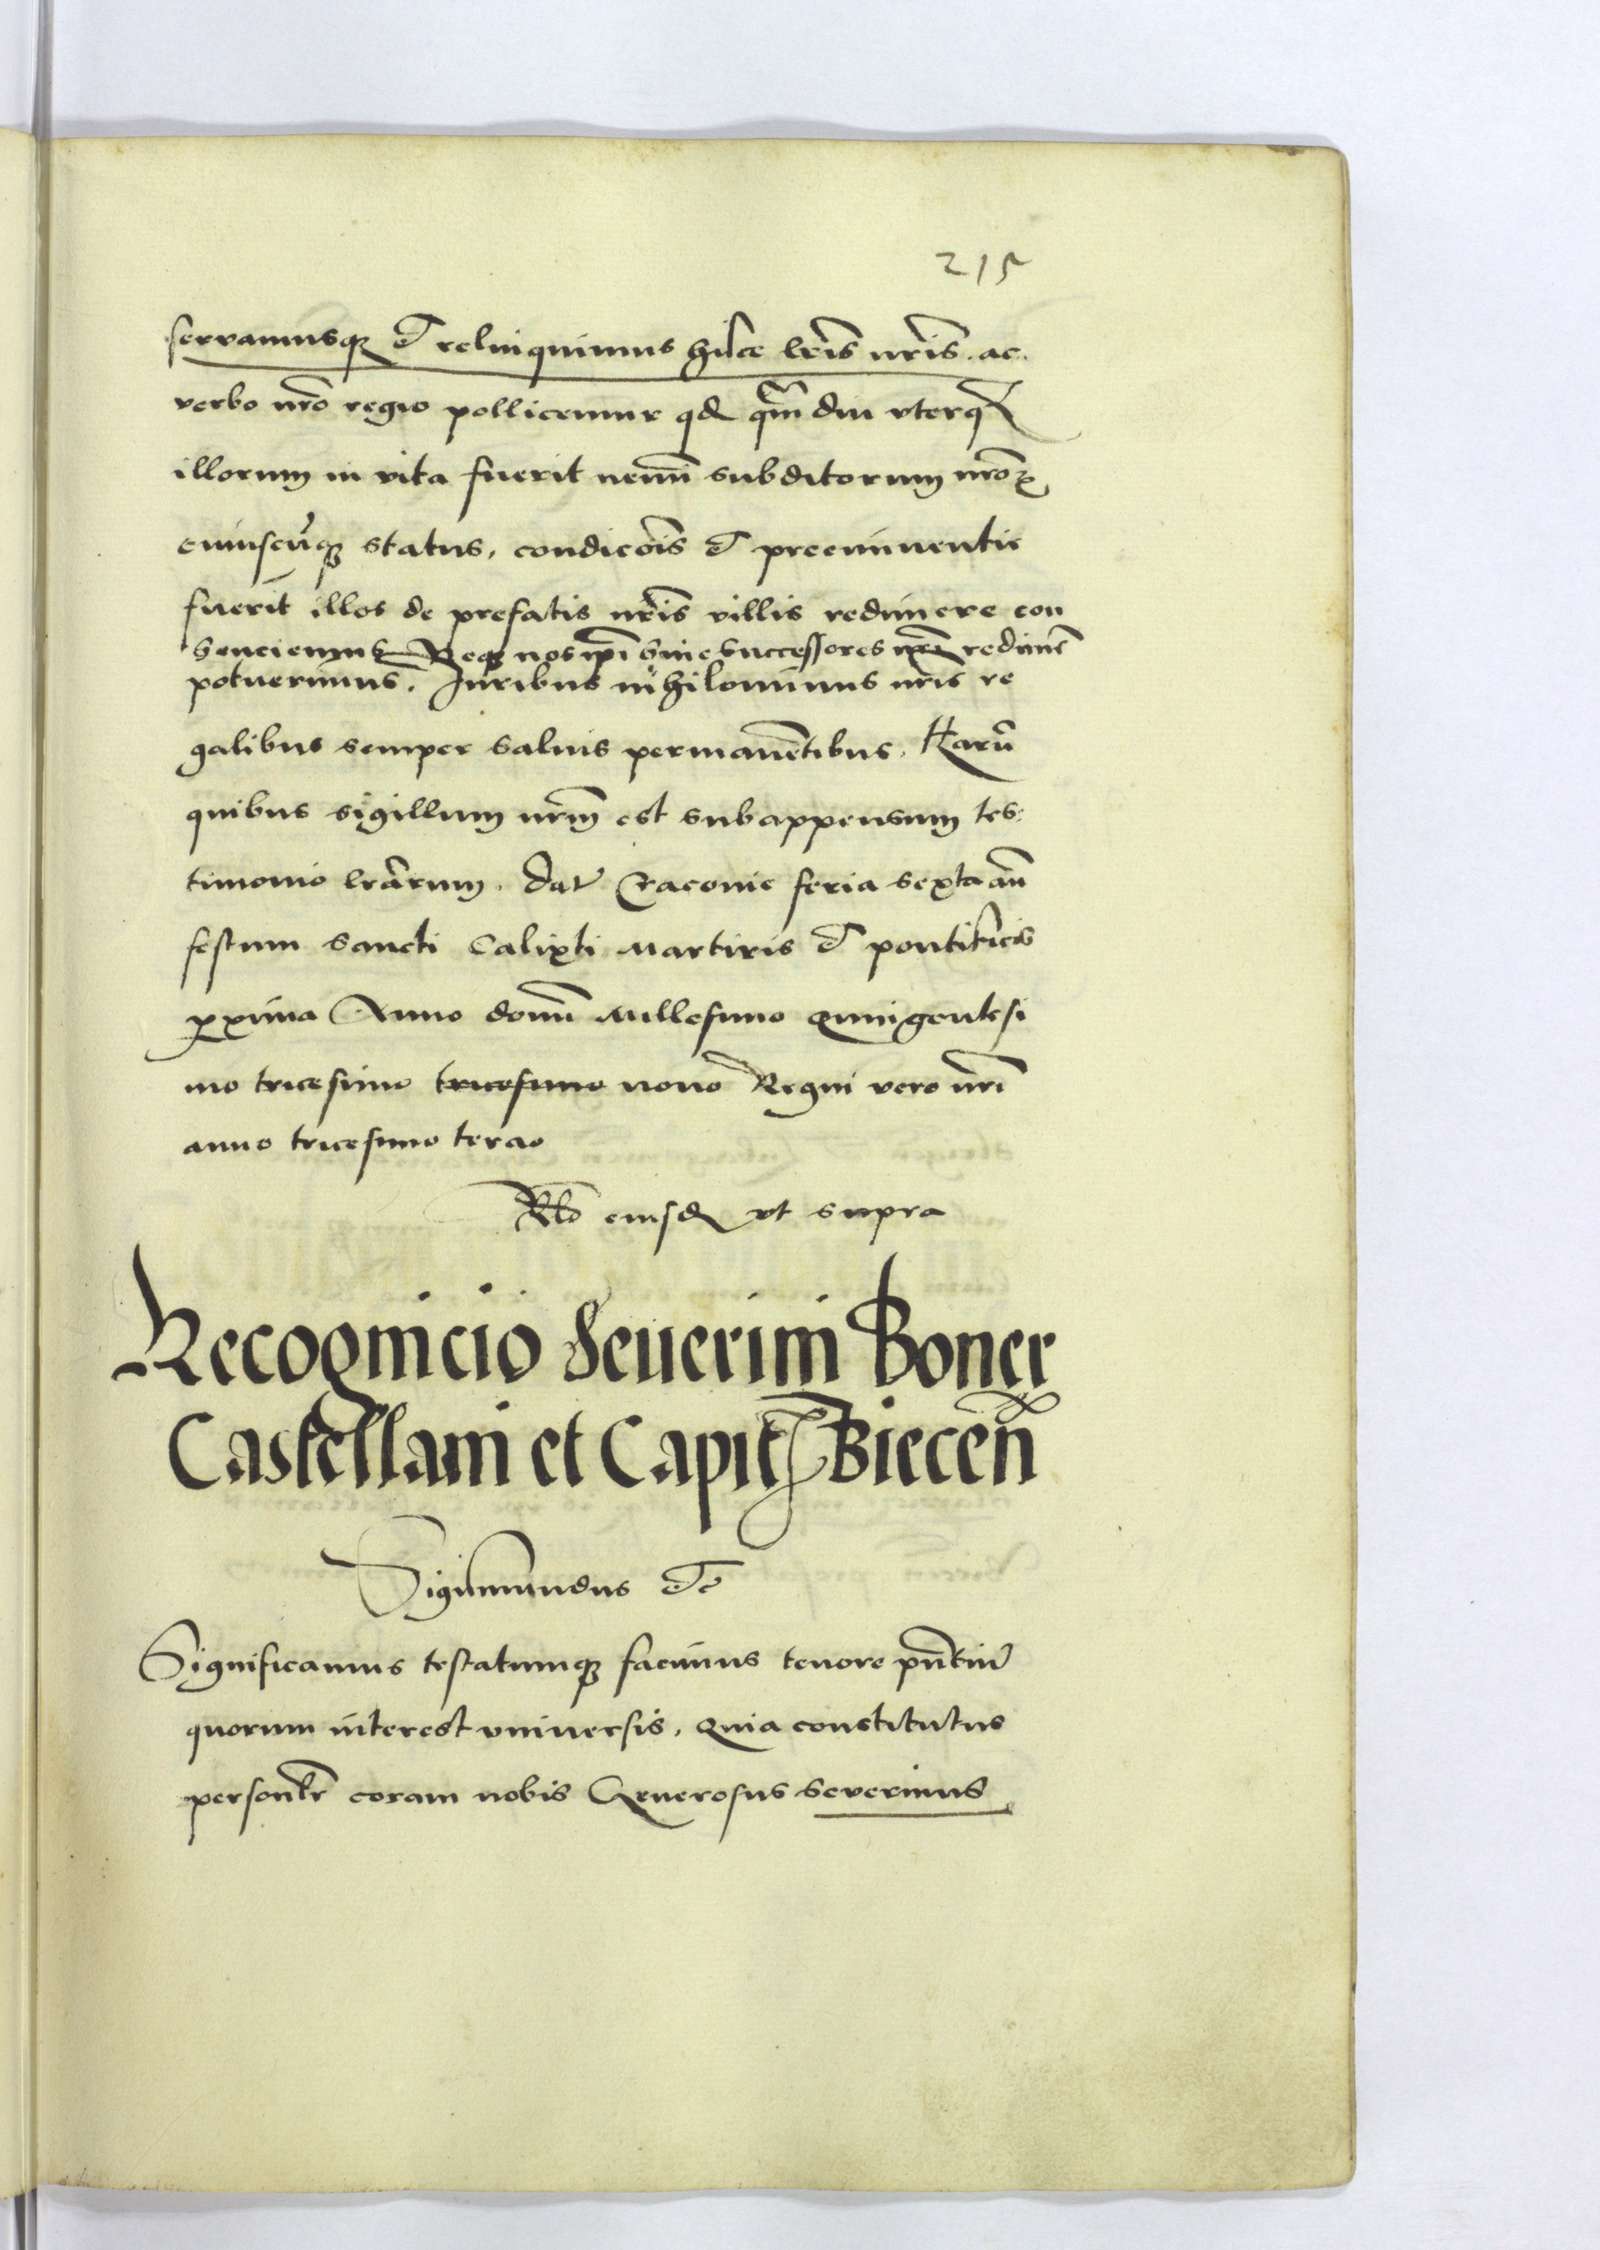 215
servamusq et relinquimus hisce lris nris. ac.
verbo nro regio pollicemur qd qm diu uterq
illorum in vita fuerit nemi subditorum nror
cuiuscuq status, condicois et preeminentie
fuerit illos de prefatis nris villis redimere con
senciemus Neq nos ipi sine successores nri redime
potuerimus. Juribus nihilominus nris re
galibus semper salvis permanetibus. Haru
quibus sigillum nrm est subappensum tes:
timonio lrarum. Dat Cracovie feria sexta an
festum Sancti Calixti Martiris et pontificis
pxima Anno domi Millesimo Quingentesi
mo tricesimo tricesimo nono Regni vero nri
anno tricesimo tercio
Rlo eiusd ut supra
Recognicio Severini Boner
Castellani et Capit Biecen
Sigismundus etc
Significamus testatumq facimus tenore pntiu
quorum interest universis, Quia constitutus
personlr coram nobis Generosus Severinus